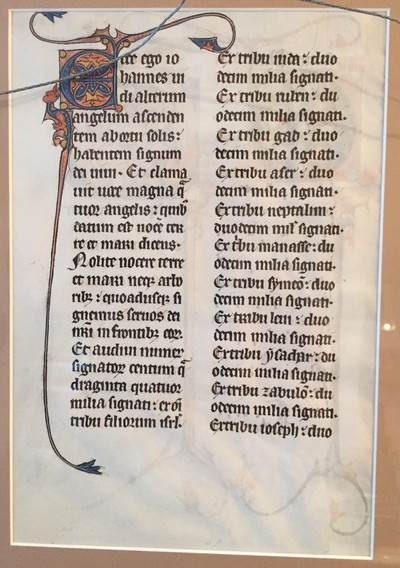 Ecce ego io
hannes ui
di alterum
angelum ascenden
tem ab ortu solis:
habentem signum
dei uiui. Et clama
uit uoce magna q̄
tuor angelis: quibꝫ
datum est nocē ter
re et mari dicens.
Nolite nocere terre
et mari neqꝫ arbo
ribꝫ: quoadusqꝫ si
gnemus seruos dei
nr̄i in frontibꝫ eoꝝ.
Et audiui numeꝝ
signatoꝝ centum q̄
draginta quatuor
milia signati: ex oī
tribu filiorum isrl̄.
Ex tribu iuda: duo
decim milia signati.
Ex tribu ruben: du
odecim milia signati.
Ex tribu gad: duo
decim milia signati.
Ex tribu aser: duo
decim milia signati.
Ex tribu neptalim:
duodecim mil' signati.
Ex tͥbu manasse: du
odecim milia signati.
Ex tribu symeō: duo
decim milia signati.
Ex tribu leui: duo
decim milia signati.
Ex tribu ysachar: du
odecim milia signati.
Ex tribu zabulō: du
odecim milia signati.
Ex tribu ioseph: duo